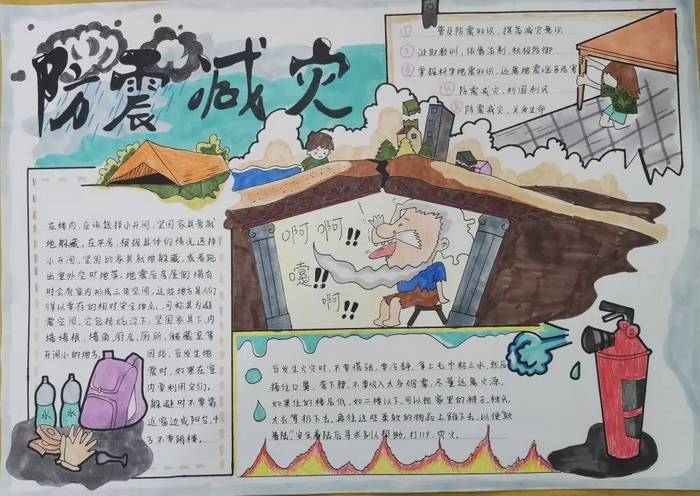 防震减灾
① 普及防震知识，提高减灾意识
② 汲取教训，依靠法制，积极防御
③ 掌握科学地震知识，远离地震谣言危害
④ 防震减灾，利国利民
⑤ 防震减灾，关爱生命
在楼内，应该选择小开间、坚固家具旁就
地躲藏。在平房，根据具体的情况选择
小开间、坚固的家具就增躲藏，或者跑
出室外空旷地带。地震后房屋的塌
时会有室内形成三角空间，这些地方是人们
得以幸存的相对安全地点，可称其为避
震空间，它包括炕沿下，坚固家具下，内
墙墙根、墙角、厨房、厕所、储藏室等
开间小的地方。
因此，当发生地
震时，如果在室
内要利用它们。
躲避时不要靠
近窗边或阳台，千
万不要跳楼。
啊啊!!
嚏!!
啊!!
水
水
当发生火灾时，不要慌张，要冷静，拿上毛巾粘上水，然后
捂住口鼻，弯下腰，不要吸入太多烟雾，尽量远离火源。
如果住的楼层低，如三楼以下，可以把家里的被子、枕头、
大衣等扔下去，再往这些柔软的物品上跳下去，以便软
着陆"安全着陆后寻求别人帮助，打119，灾火。